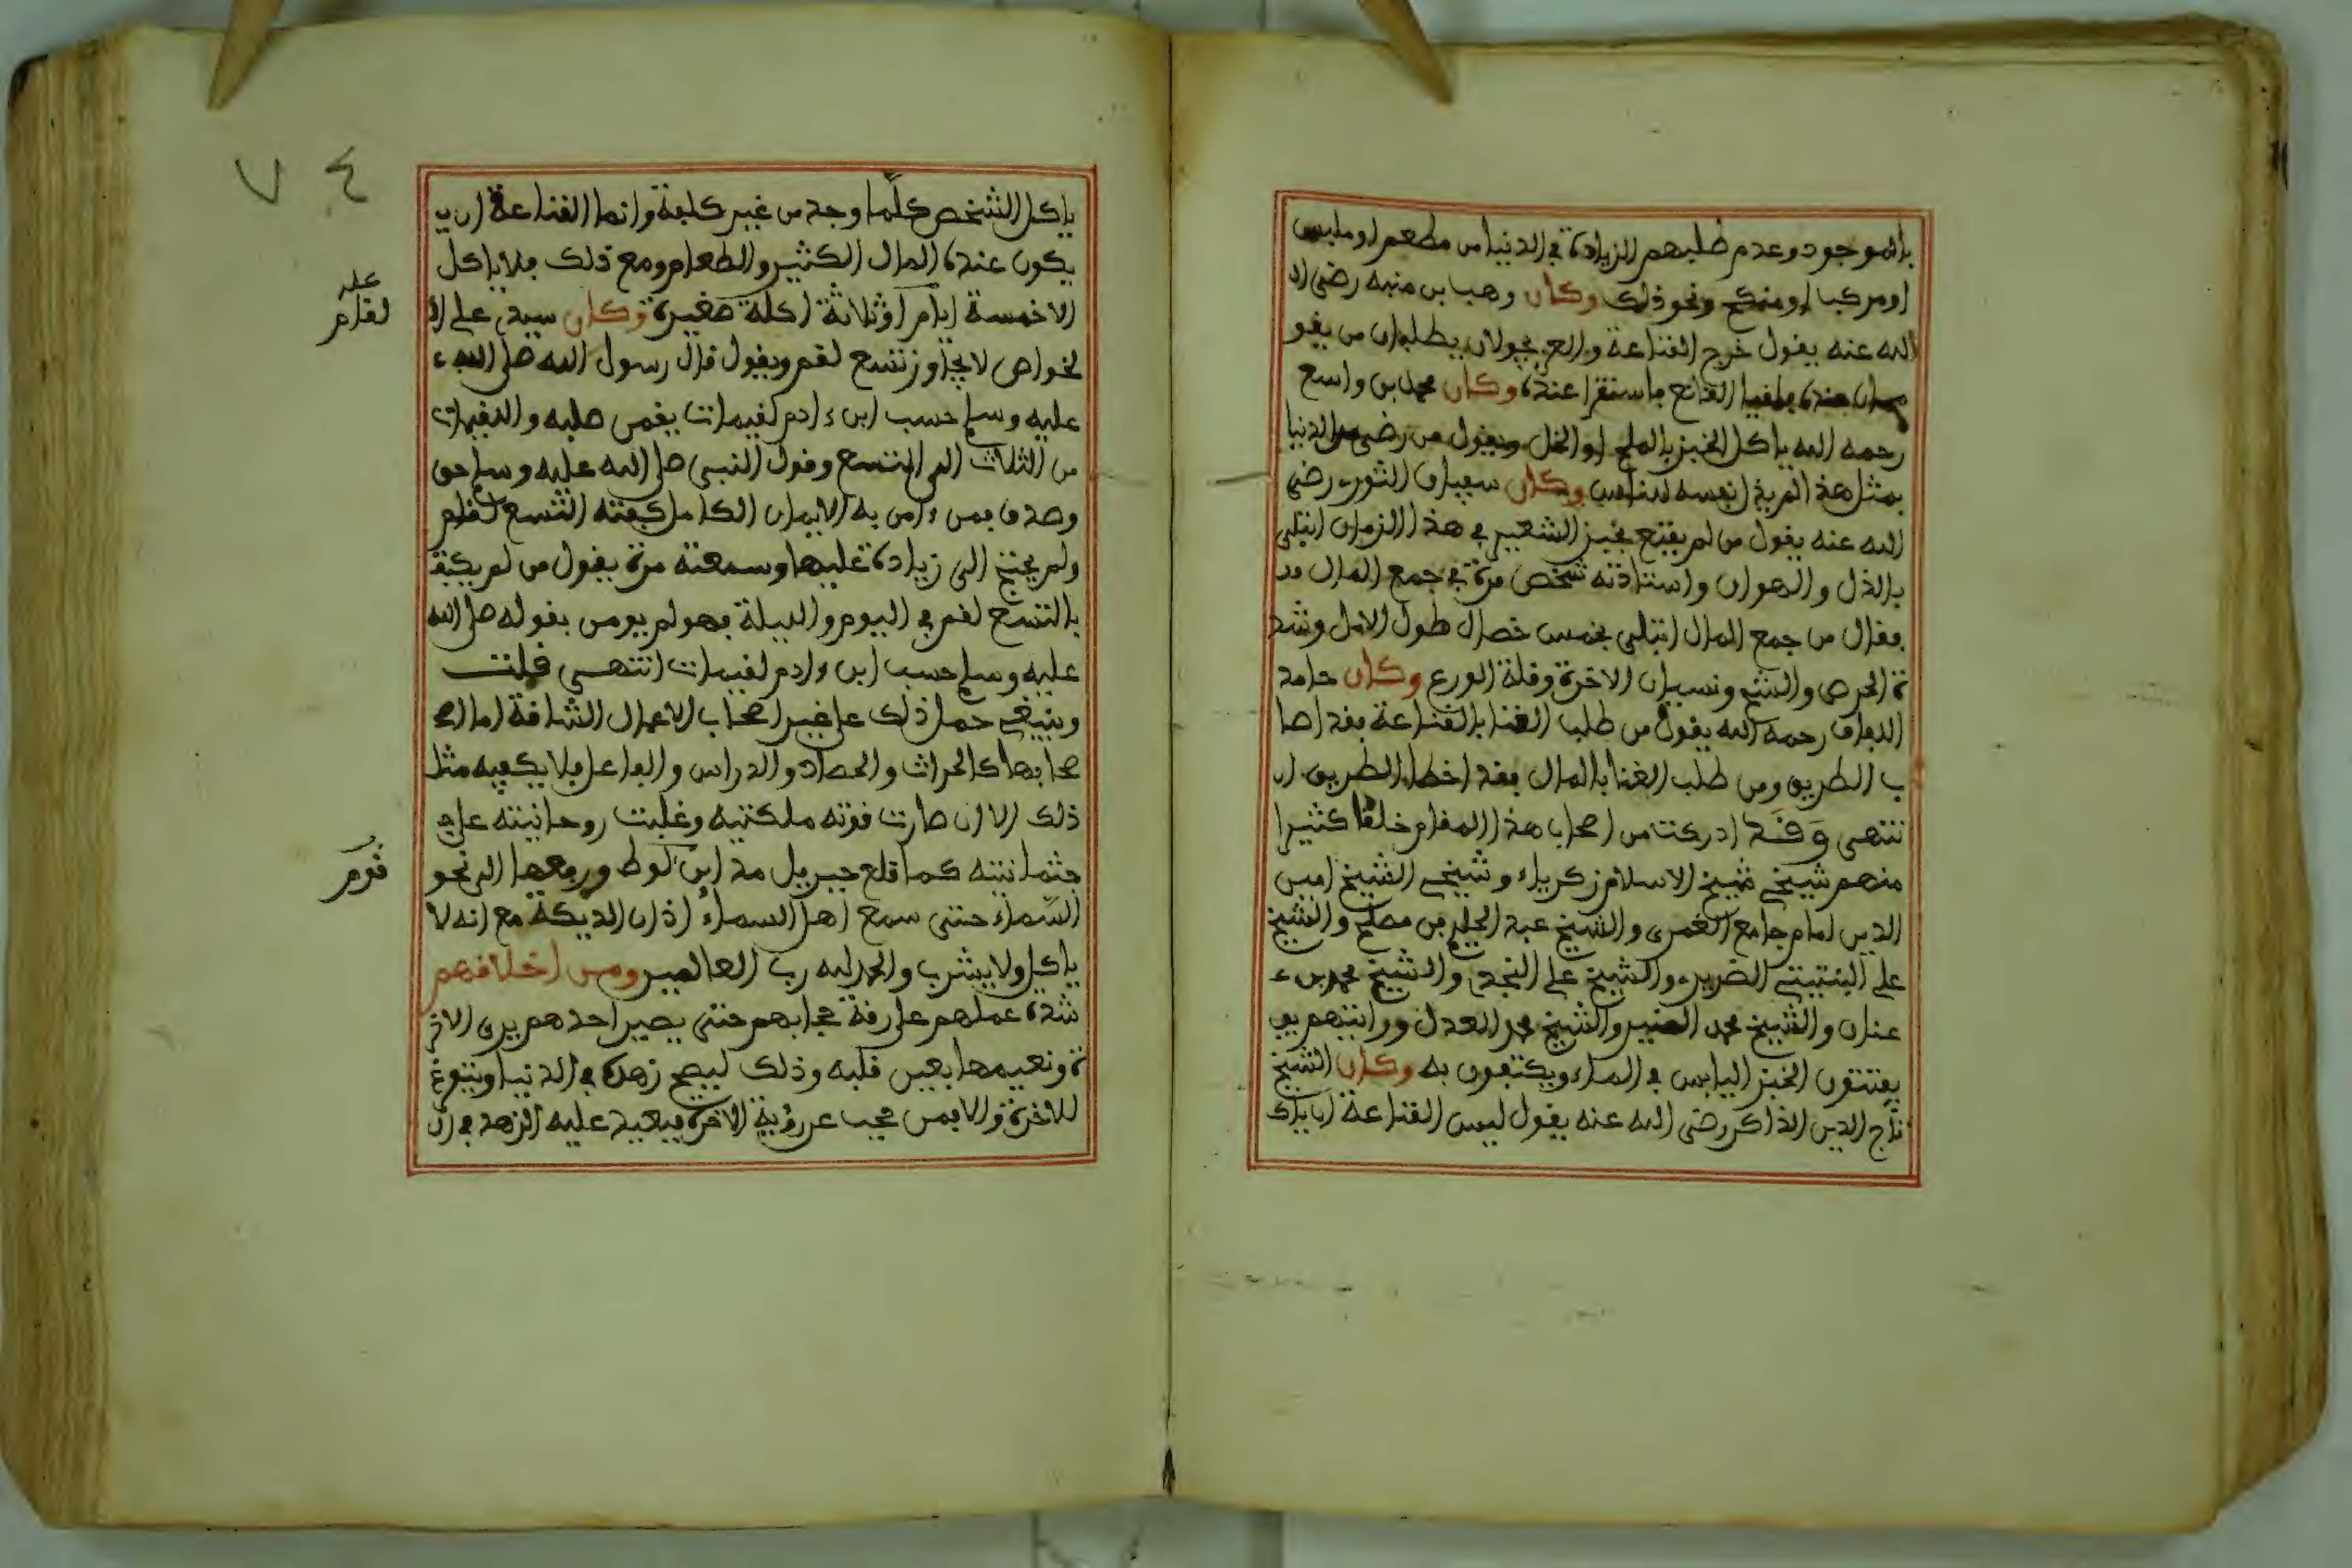 بالموجود وعدم طلبهم الزيادة في الدنيا من مطعم او ملبس
او مركبا او منكح ونحو ذلك وكان وهب بن منبه رضي ال
الله عنه يقول خرج الغنا عة والعز يجولان يطلبان من يقو
القانع فاستقرا عنده وكان محمد بن واسع
رحمه الله ياكل الخبز بالملح او الخل ويقول من رضي من الدنيا
بمثل هذا لم يذل نفسه للناس وكان سفيان الثورى رضي
الله عنه يقول من لم يقنع بخبز الشعير في هذا الزمان ابتلى
بالذل والهوان واستاذنه شخص مرة في جمع المال
فقال من جمع المال ابتلى بخمس خصال طول الامل وشد
ة الحرص والشح ونسيان الاخرة وقلة الورع وكان حامد
اللفاف رحمه الله يقول من طلب الغنا بالقناعة فقد اصا
ب الطريق ومن طلب الغنا بالمال فقد اخطا الطريق ا
نتهى وقد ادركت من اصحاب هذا المقام خلقا كثيرا
منهم شيخي شيخ الاسلام زكرياء وشيخي الشيخ امين
الدين امام جامع الغمرى والشيخ عبد الحليم بن مصلح والشيخ
علي النبتيتي الضرير والشيخ علي النجدي والشيخ محمد بن ء
عنان والشيخ محمد المنير والشيخ محمد العدل ورايتهم يو
يفتتون الخبز اليابس في الماء ويكتفون به وكان الشيخ
تاج الدين الذاكر رضي الله عنه يقول ليس القناعة ان ياك
٧٤
ياكل الشخص كلما وجد من غير كلفة وانما القناعة ان ي
يكون عنده المال الكثير والطعام ومع ذلك فلا ياكل
الا خمسة ايام او ثلاثة اكلة صغيرة وكان سيدي علي ال
لخواص لا يجاوز تسع لقم ويقول قال رسول الله صلى الله ء
عليه وسلم حسب ابن ءادم لقيمات يقمن صلبه واللقيمات
من الثلاث الى التسع وقول النبي صلى الله عليه وسلم حق
وصدق فمن ءامن به الايمان الكامل كفته التسع لقم
ولم يحتج الى زيادة عليها وسمعته مرة يقول من لم يكتف
بالتسع لقم في اليوم والليلة فهو لم يومن بقوله صلى الله
عليه وسلم حسب ابن ءادم لقيمات انتهى قلت
وينبغي حمل ذلك على غير اصحاب الاعمال الشاقة اما اص
صحابها كالحراث والحصاد والدراس والفاعل فلا يكفيه مثل
ذلك الا ان صارت قوته ملكتيه وغلبت روحانيته على ج
جثمانيته كما قلع جبريل مداين لوط ورفعها الى نحو
السماء حتى سمع اهل السماء اذان الديكة مع انه لا
ياكل ولا يشرب والحمد لله رب العالمين ومن اخلاقهم
شدة عملهم على رقة حجابهم حتى يصير احدهم يرى الاخر
ة ونعيمها بعين قلبه وذلك ليصح زهده في الدنيا ويتفرغ
للاخرة والا فمن حجب عن رؤية الاخرة فبعيد عليه الزهد في ال
لقام
قوم